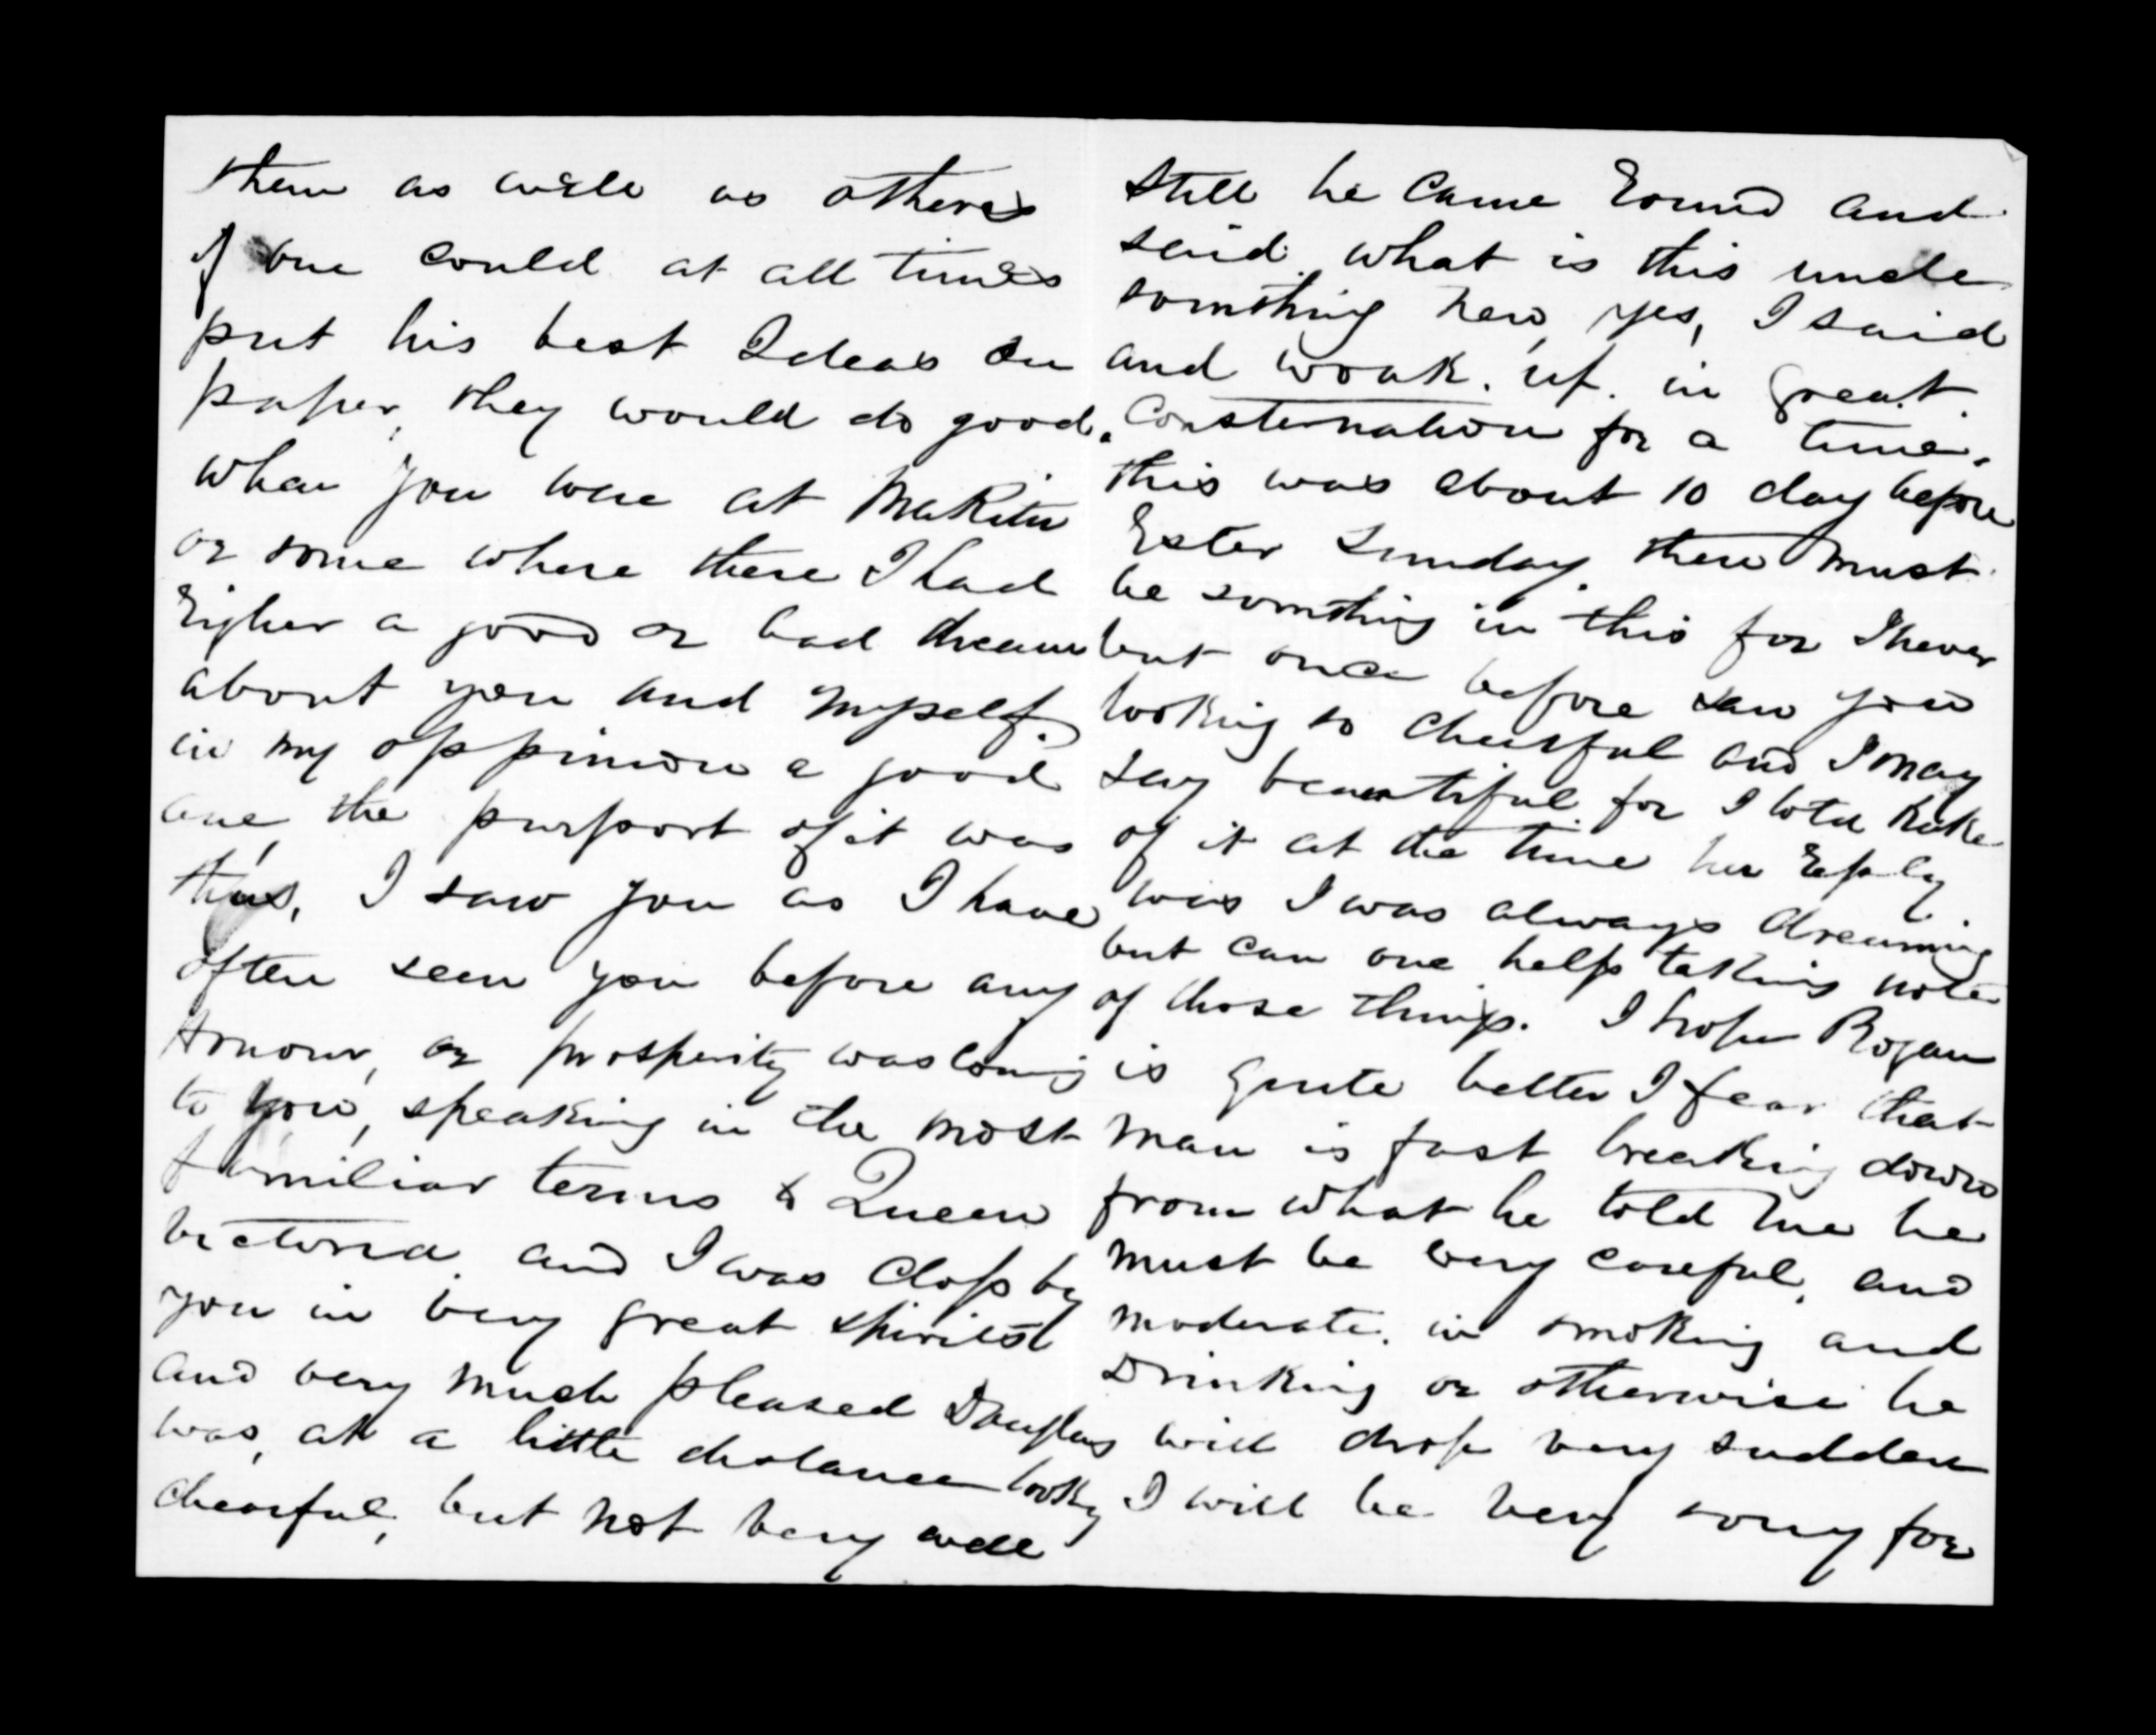 them as well as others
if one could at all times
put his best Ideas on
paper, they would do good.
when you were at Maketu
or some where there I had
Eigher a good or bad dream
about you and myself.
in my oppinion a good
one, the purport of it was
thus, I saw you as I have
often seen you before any
Honour, or prosperity was coming
to you, speaking in the most
familiar terms to Queen
victoria. and I was close by
you in very great spirits
and very much pleased Douglas
was, at a little distance looking
chearful, but not very well
still he came round and
said what is this uncle
somthing new, yes, I said
and woak. up. in great.
Consternation for a time.
this was about 10 day before
Ester Sunday. there must
be somthing in this for I never
but once before saw you
looking so chearful and I may
say beautiful. for I told
of it at the time her Reply
was I was always dreaming
but can one help taking note
of those things. I hope Rogan
is quite better I fear that
man is fast breaking down
from what he told me he
must be very careful, and
moderate. in smoking and
Drinking or otherwise he
will drop very sudden
I will be very sorry for